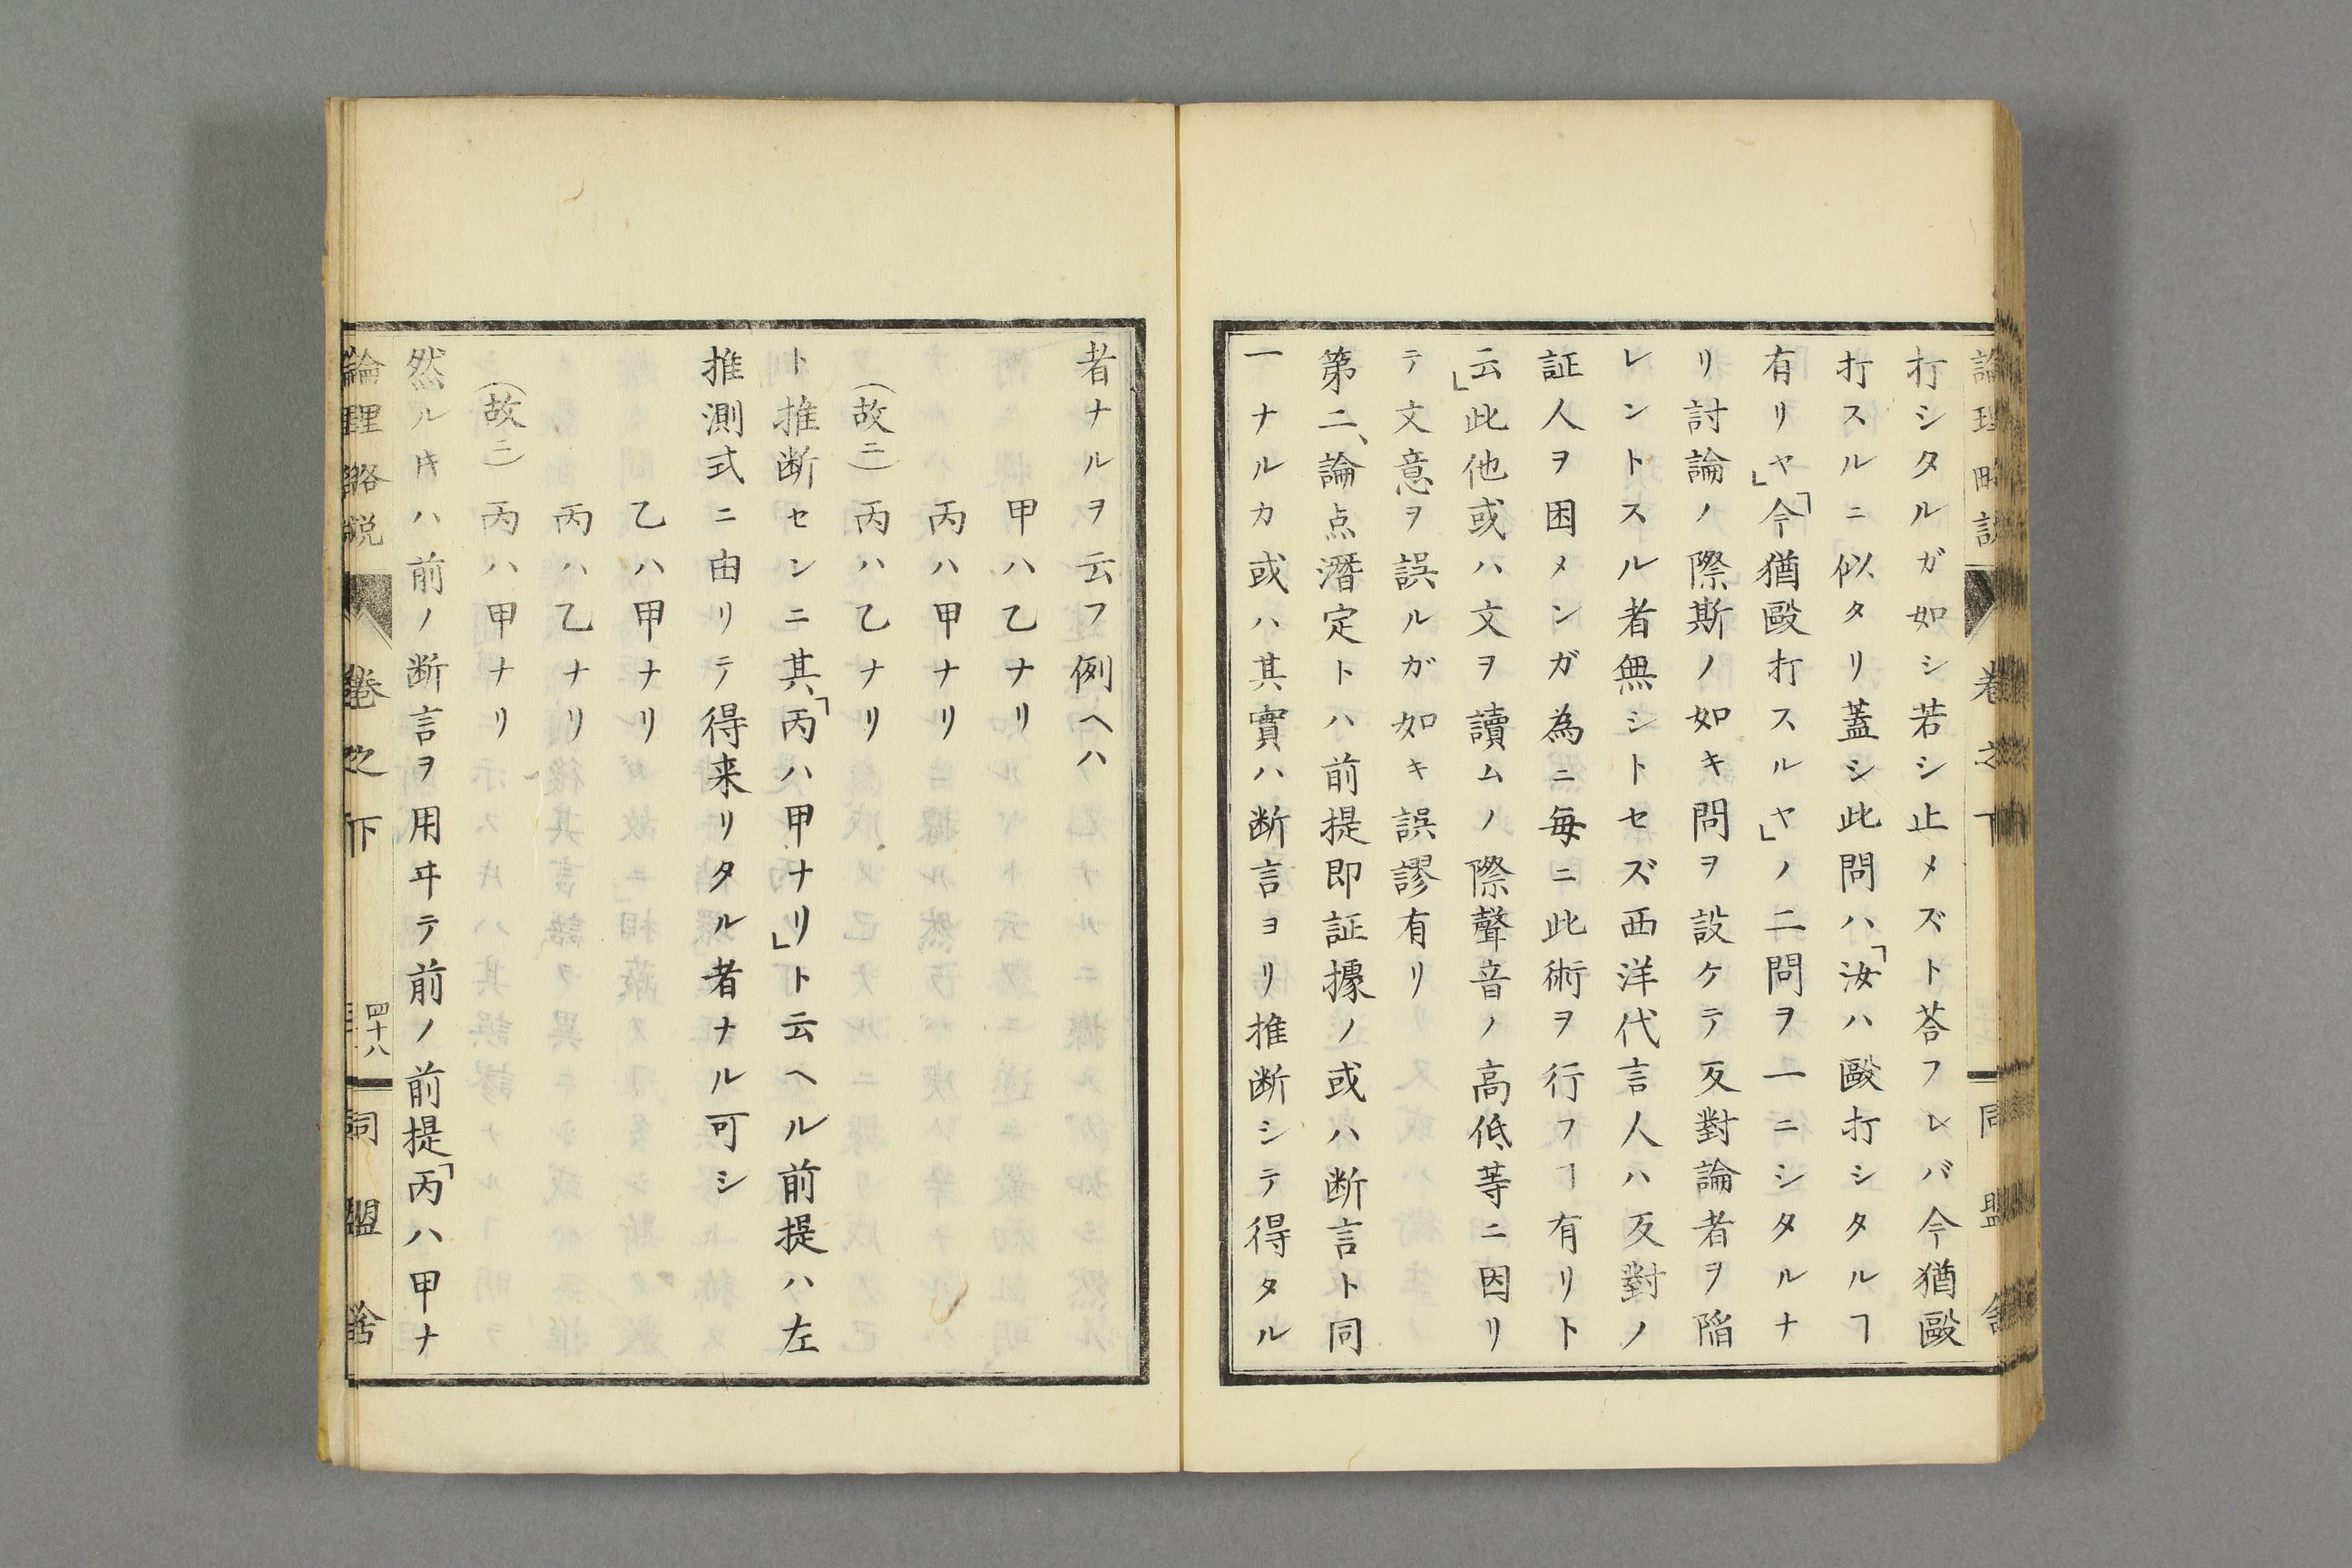 論理略説 卷之下 同盟舍
打シタルガ如シ若シ止メズト荅フレバ今猶毆
打スルニ似タリ蓋シ此問ハ「汝ハ毆打シタルヿ
有リヤ」「今猶毆打スルヤ」ノ二問ヲ一ニシタルナ
リ討論ノ際斯ノ如キ問ヲ設ケテ反對論者ヲ陷
レントスル者無シトセズ西洋代言人ハ反對ノ
証人ヲ困メンガ為ニ毎ニ此術ヲ行フヿ有リト
云」此他或ハ文ヲ讀ムノ際聲音ノ高低等ニ因リ
テ文意ヲ誤ルガ如キ誤謬有リ
第二、論点潛定トハ前提即証據ノ或ハ断言ト同
一ナルカ或ハ其實ハ断言ヨリ推断シテ得タル
者ナルヲ云フ例ヘハ
甲ハ乙ナリ
丙ハ甲ナリ
(故ニ)丙ハ乙ナリ
ト推断センニ其「丙ハ甲ナリ」ト云ヘル前提ハ左
推測式ニ由リテ得来リタル者ナル可シ
乙ハ甲ナリ
丙ハ乙ナリ
(故ニ)丙ハ甲ナリ
然ルキハ前ノ断言ヲ用ヰテ前ノ前提「丙ハ甲ナ
論理略説 卷之下 四十八 同盟舍